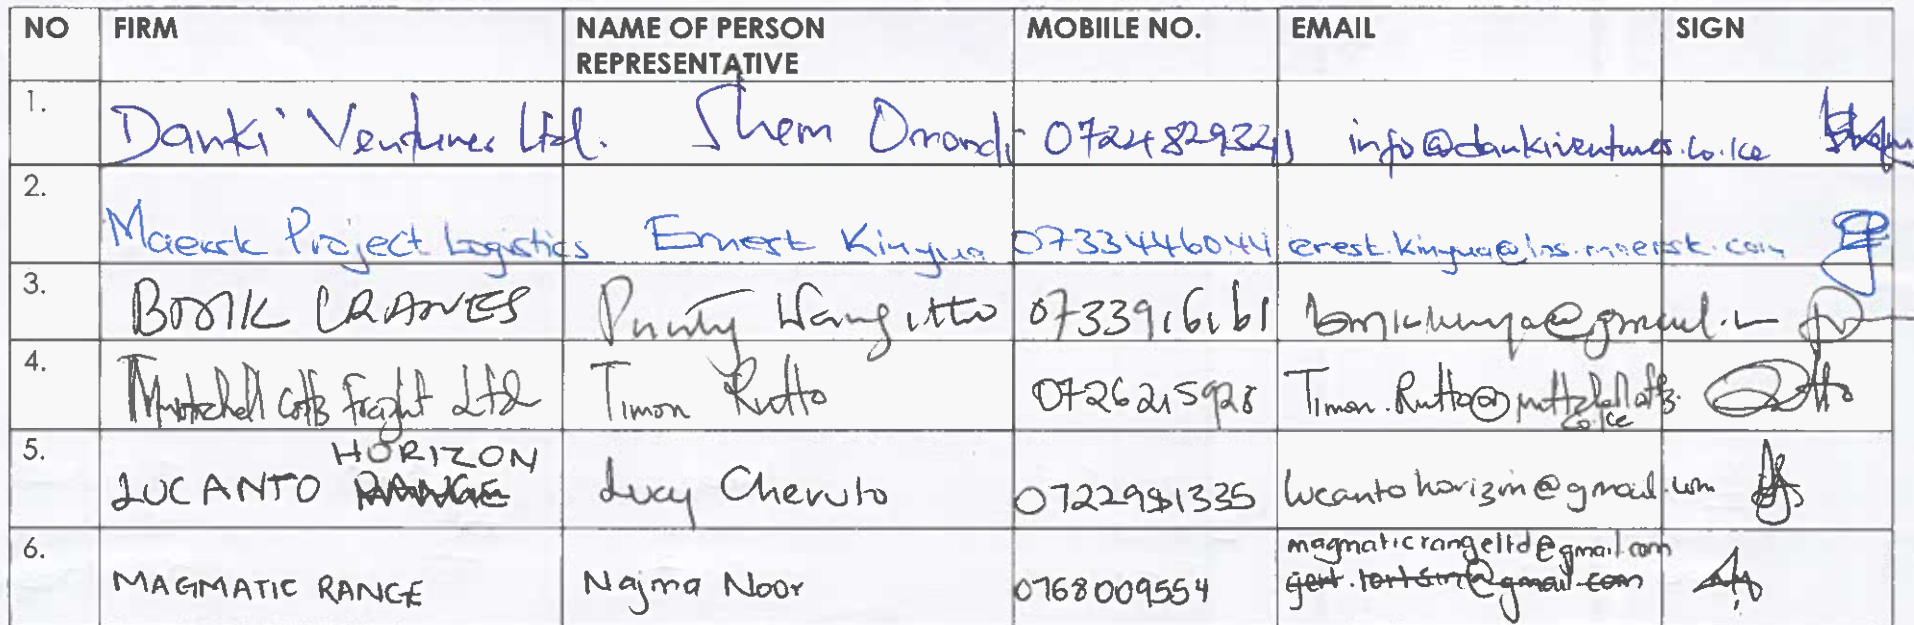 NO FIRM NAME OF PERSON REPRESENTATIVE MOBIILE NO. EMAIL SIGN
1. Danki Ventures Ltd. Shem Omondi 0724829341 info@dankiventures.co.ke
2. Maersk Project Logistics Ernest Kinyua 0733446044 erest.kinyua@lns.maersk.com
3. BOMK CRANES Purity 0733916161
4. Mitchell Cotts Freight Ltd Timon Rutto 0726215928
5. LUCANTO HORIZON Lucy Cheruto lucantohorizon@gmail.com
6. MAGMATIC RANGE Najma Noor 0768009554 magmaticrangeltd@gmail.com